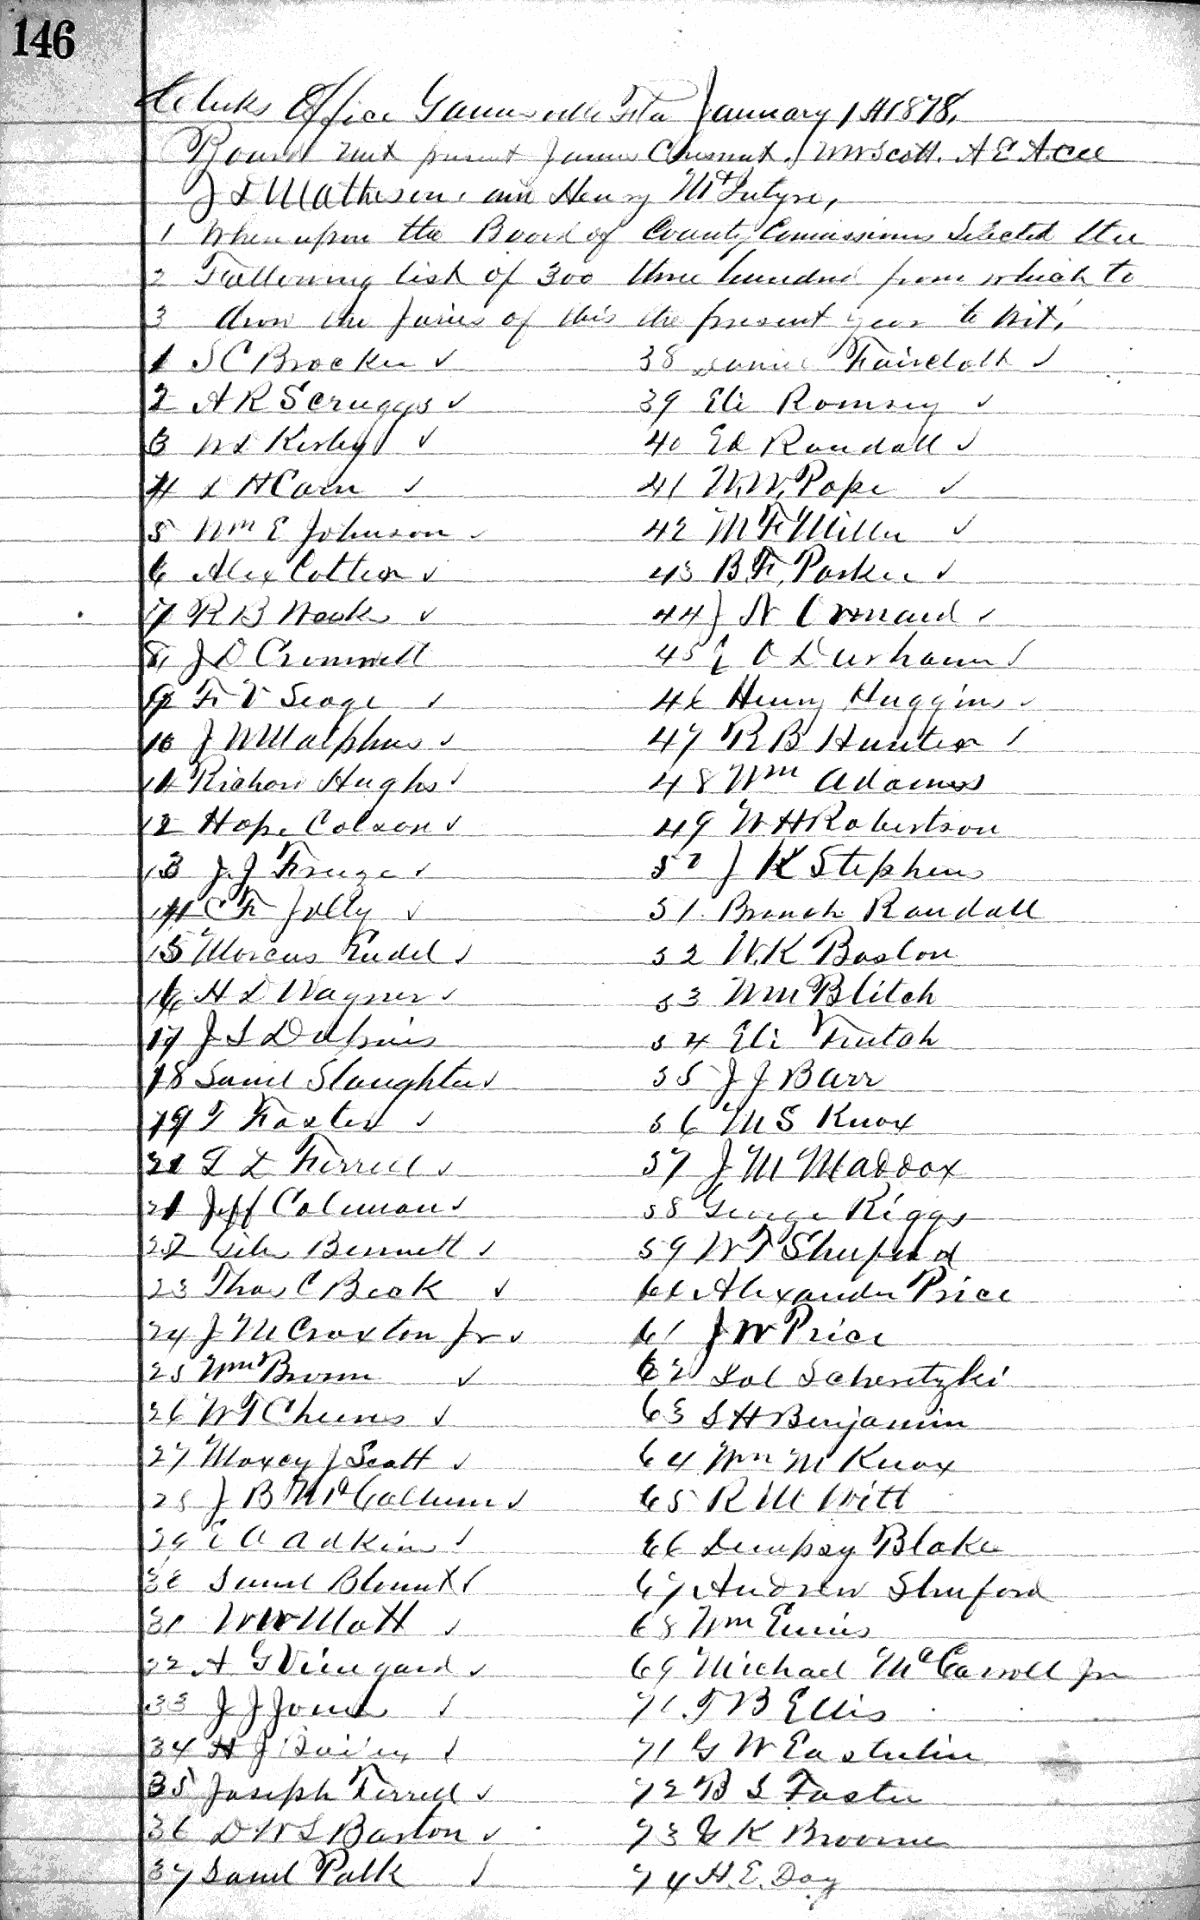 146
Clerks Office Gainesville Fla January 1st 1878,
Board met present James Chesnut. W W Scott. A E A
J D Matheson, and Henry McIntyre,
1 Whereupon the Board of County Comissioners Selected the
2 Following list of 300 three hundred from which to
3 draw the Juries of this the present year to wit,
1 S C Brocker ✓
2 A R Scruggs ✓
3 W L Kirby ✓
4 L H Carn ✓
5 Wm E Johnson ✓
6 Alex Cotter ✓
7 R B Weeks ✓
8 J D Cromwell
9 F V Seage ✓
10 J W Malphus ✓
11 Richard Hughs ✓
12 Hope Colson ✓
13 J. J ✓
14 C F Jolly ✓
15 Marcus Endel ✓
16 H L Wagner ✓
17 J S Dupuis
18 Saml Slaughter ✓
19 T Foster ✓
20 T L Ferrell ✓
21 Jeff Coleman ✓
22 Giles Bennett ✓
23 Thos C Beck ✓
24 J M Croxton Jr ✓
25 Wm Brown ✓
26 W T Cheeves ✓
27 Moxey J Scott ✓
28 J B McCallum ✓
29 E A Adkins ✓
30 Saml Blount ✓
31 W W Mott ✓
32 A G Vinegard ✓
33 J J Jones ✓
34 H J ✓
35 Joseph Ferrell ✓
36 D W S Barton ✓
37 Saml Palk ✓
38 Daniel Faircloth ✓
39 Eli Romsey ✓
40 Ed Randall ✓
41 W. W. Pope ✓
42 M F Miller ✓
43 B. F. Parker ✓
44 J N ✓
45 E O Durham ✓
46 Henry Huggins ✓
47 R B Hunter ✓
48 Wm Adams
49 W H Robertson
50 J K Stephens
51. Branch Randall
52 W. K Boston
53 Wm Blitch
54 Eli Futch
55 J J Barr
56 M S Knox
57 J M Maddox
58 George Riggs
59 W F Shuford
60 Alexander Price
61 J W Price
62 Sol Scheretzki
63 S H Benjamin
64 Wm M Knox
65 R M Witt
66 Dempsey Blake
67 Andrew Shuford
68 Wm Ennis
69 Michael McCarroll Jr
70. T B Ellis
71 G W Easterlin
72 B S Foster
73 G K Broome
74 H. E. Day